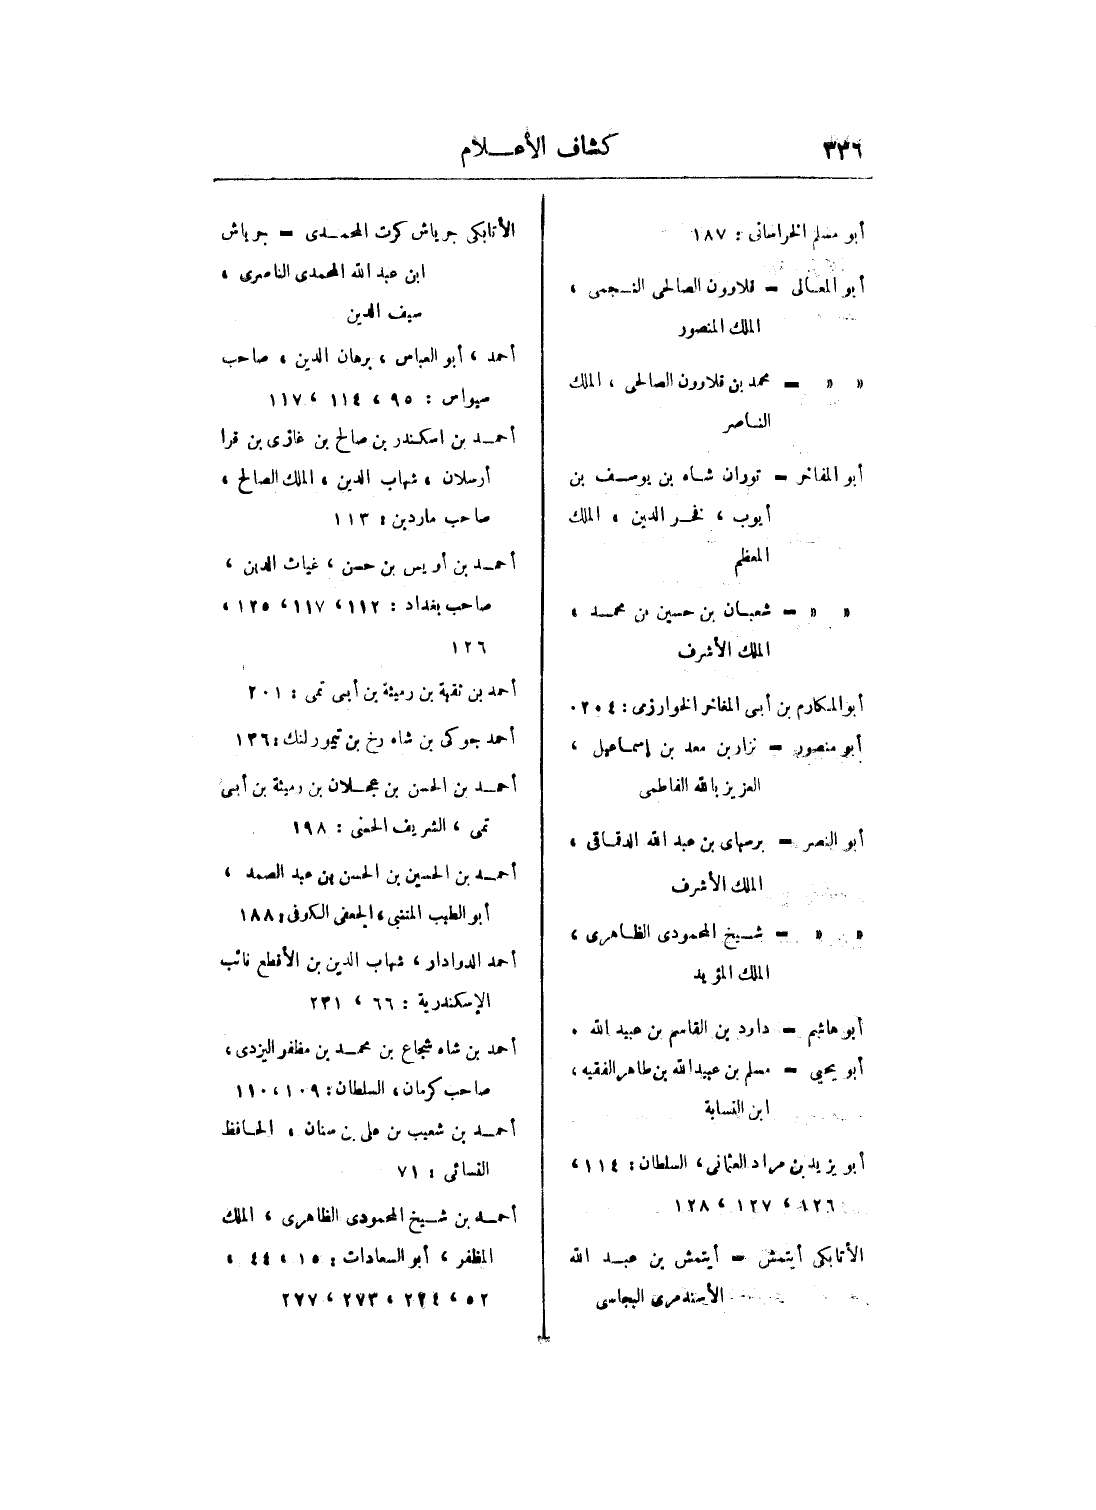 ٣٣٦
كشاف الأعلام
أبو مسلم الخراسانى : ١٨٧
أبو المعالى = قلاوون الصالحى النجمى ،
الملك المنصور
« « = محمد بن قلاوون الصالحى ، الملك
الناصر
أبو المفاخر = توران شاه بن يوسف بن
أيوب ، فخر الدين ، الملك
المعظم
« « = شعبان بن حسين بن محمد ،
الملك الأشرف
أبو المكارم بن أبى المفاخر الخوارزمى : ٢٥٤٠
أبو منصور = نزار بن معد بن إسماعيل ،
العزيز بالله الفاطمى
أبو النصر = برسباى بن عبد الله الدقماقى ،
الملك الأشرف
« « = شيخ المحمودى الظاهرى ،
الملك المؤيد
أبو هاشم = داود بن القاسم بن عبيد الله .
أبو يحيى = مسلم بن عبيد الله بن طاهر الفقيه ،
ابن النسابة
أبو يزيد بن مراد العثمانى ، السلطان : ١١٤ ،
١٢٦ ، ١٢٧ ، ١٢٨
الأتابكى أيتمش = أيتمش بن عبد الله
الأسندمرى البجاسى
الأتابكى جرباش كرت المحمدى = جرباش
ابن عبد الله المحمدى الناصرى ،
سيف الدين
أحمد ، أبو العباس ، برهان الدين ، صاحب
سيواس : ٩٥ ، ١١٤ ، ١١٧
أحمد بن اسكندر بن صالح بن غازى بن قرا
أرسلان ، شهاب الدين ، الملك الصالح ،
صاحب ماردين : ١١٣
أحمد بن أويس بن حسن ، غياث الدين ،
صاحب بغداد : ١١٢ ، ١١٧ ، ١٢٥ ،
١٢٦
أحمد بن ثقبة بن رميثة بن أبى نمى : ٢٠١
أحمد جوكى بن شاه رخ بن تيمورلنك : ١٣٦
أحمد بن الحسن بن عجلان بن رميثة بن أبى
نمى ، الشريف الحسنى : ١٩٨
أحمد بن الحسين بن الحسن بن عبد الصمد ،
أبو الطيب المتنبى ، الجعفى الكوفى : ١٨٨
أحمد الدوادار ، شهاب الدين بن الأقطع نائب
الإسكندرية : ٦٦ ، ٢٣١
أحمد بن شاه شجاع بن محمد بن مظفر اليزدى ،
صاحب كرمان ، السلطان : ١٠٩ ، ١١٠
أحمد بن شعيب بن على بن سنان ، الحافظ
النسائى : ٧١
أحمد بن شيخ المحمودى الظاهرى ، الملك
المظفر ، أبو السعادات : ١٥ ، ٤٤ ،
٥٢ ، ٢٢٤ ، ٢٧٣ ، ٢٧٧